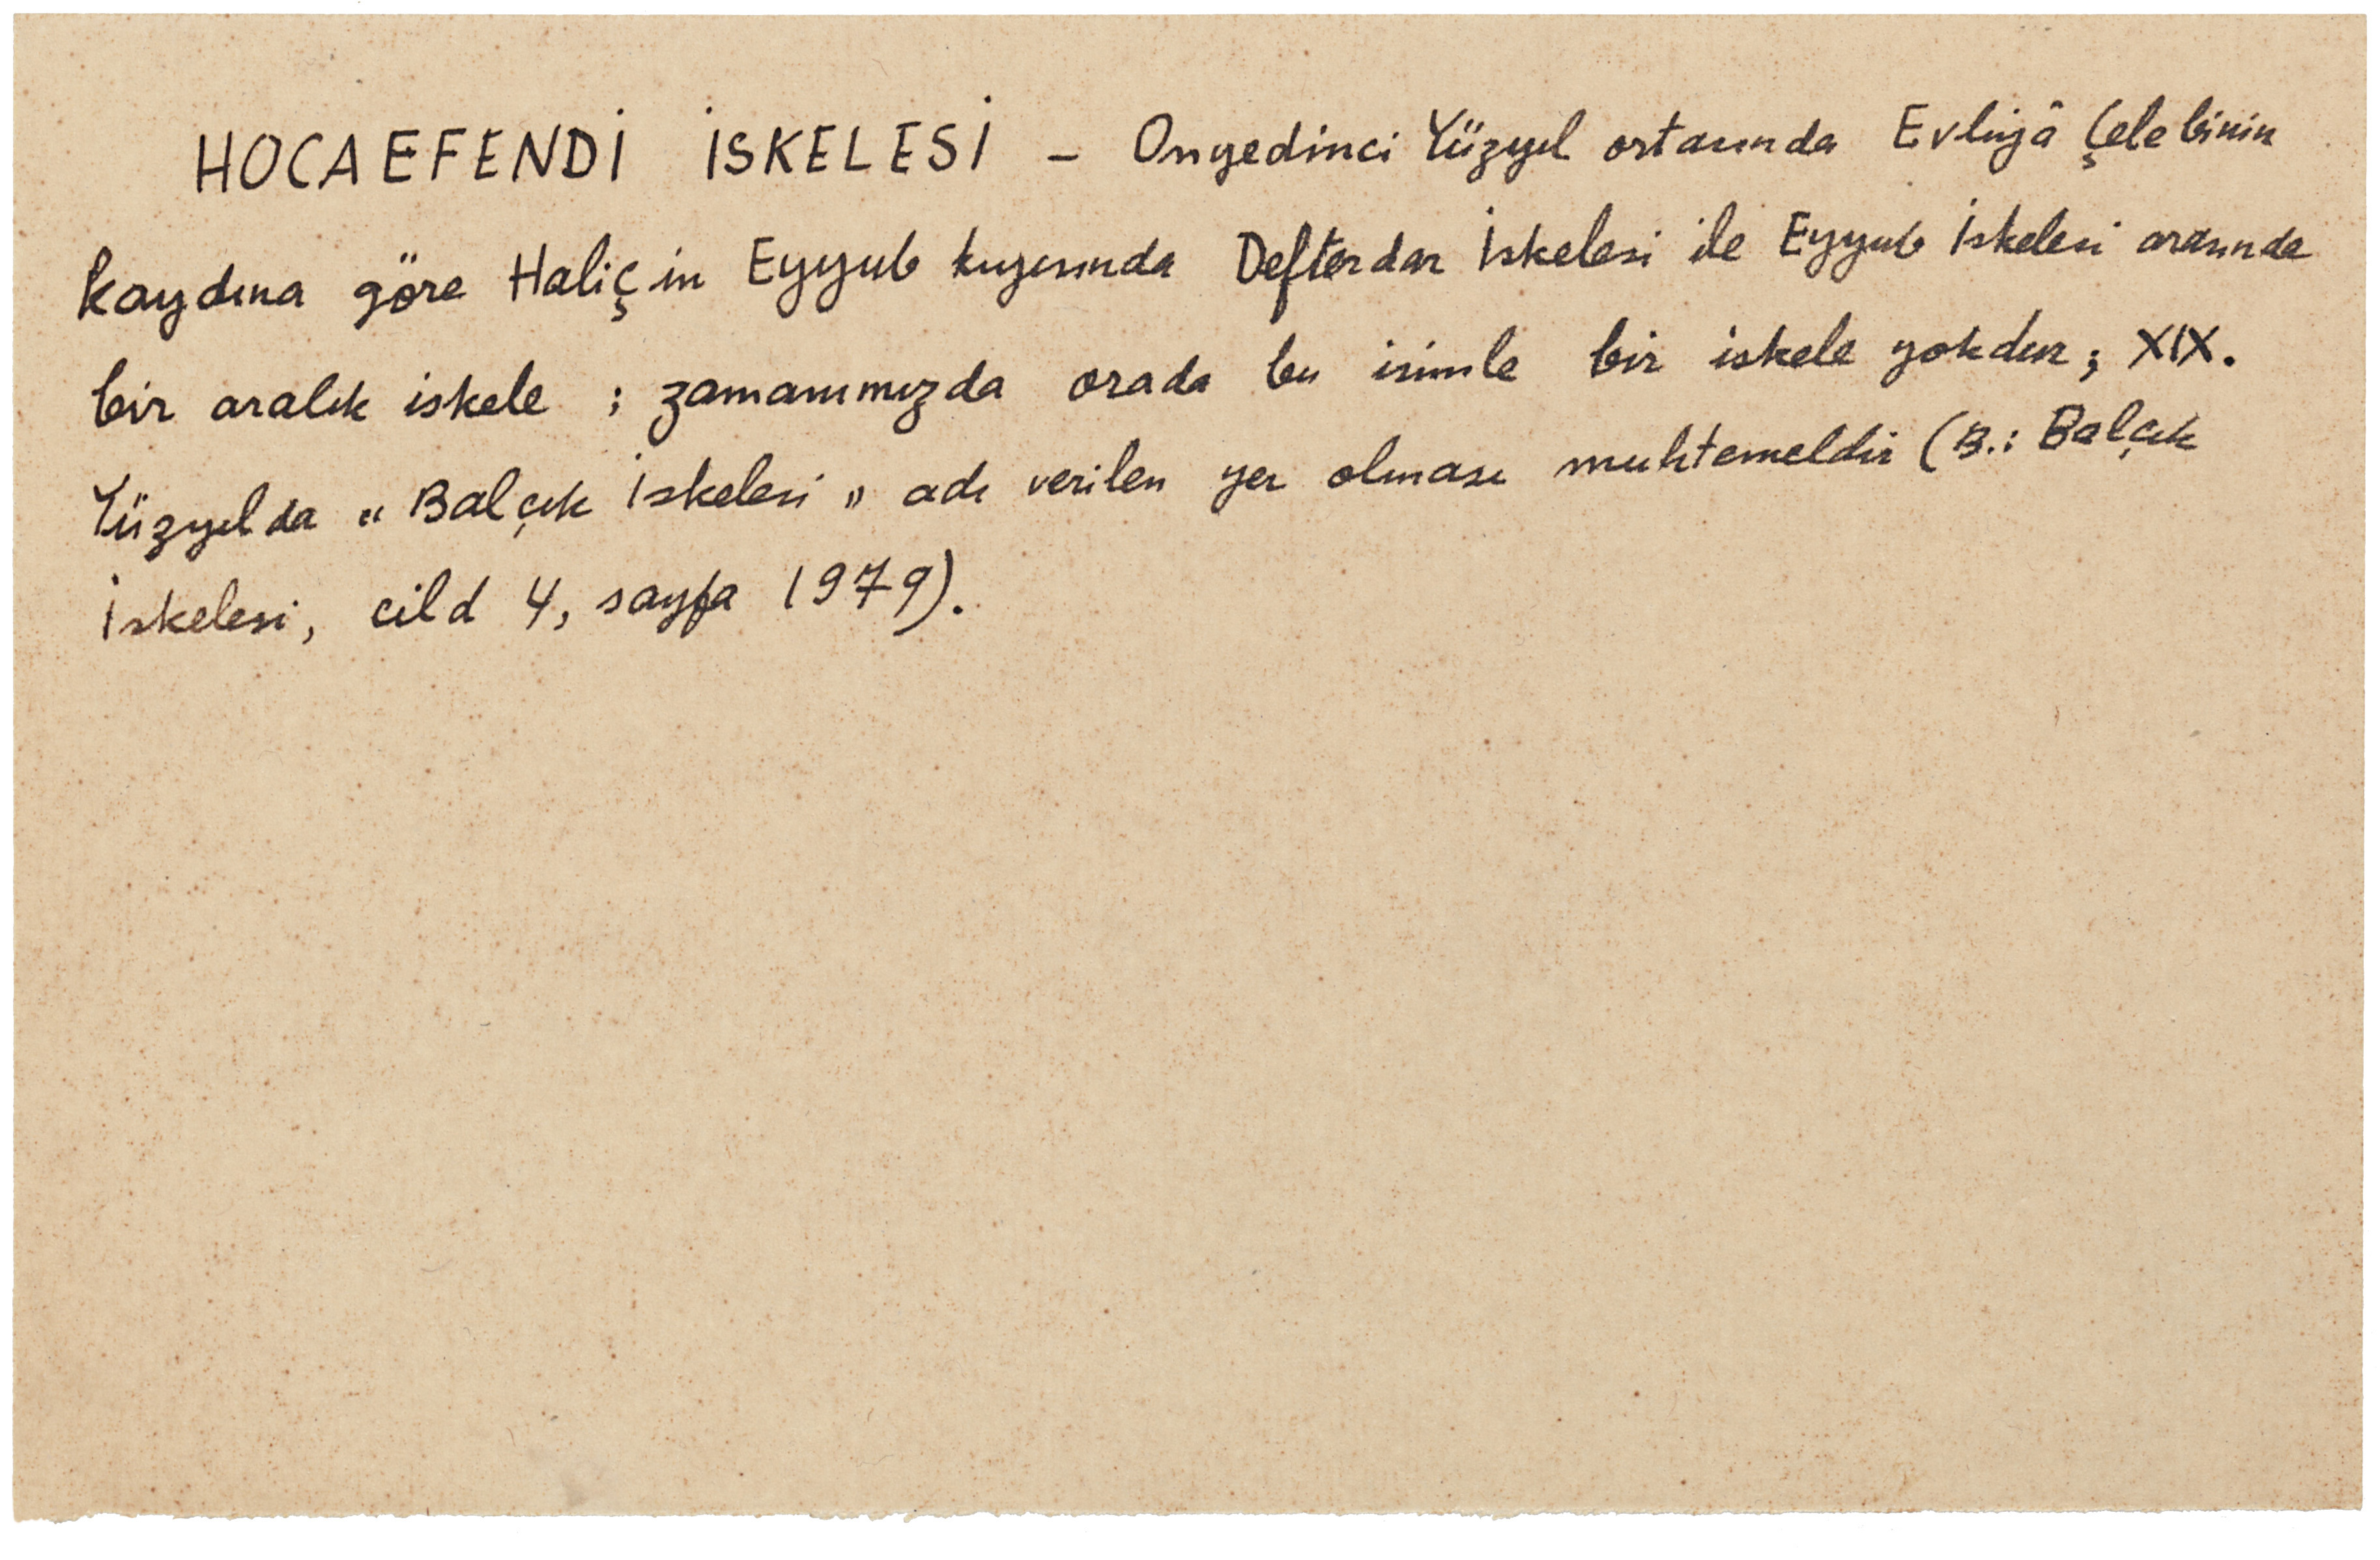 HOCAEFENDİ İSKELESİ – Onyedinci Yüzyıl ortasında Evliyâ Çelebinin
kaydına göre Haliçin Eyyub kıyısında Defterdar İskelesi ile Eyyub İskelesi arasında
bir aralık iskele ; zamanımızda orada bu isimle bir iskele yokdur ; XIX.
Yüzyılda "Balçık İskelesi" adı verilen yer olması muhtemeldir (B.: Balçık
İskelesi, cild 4, sayfa 1979).